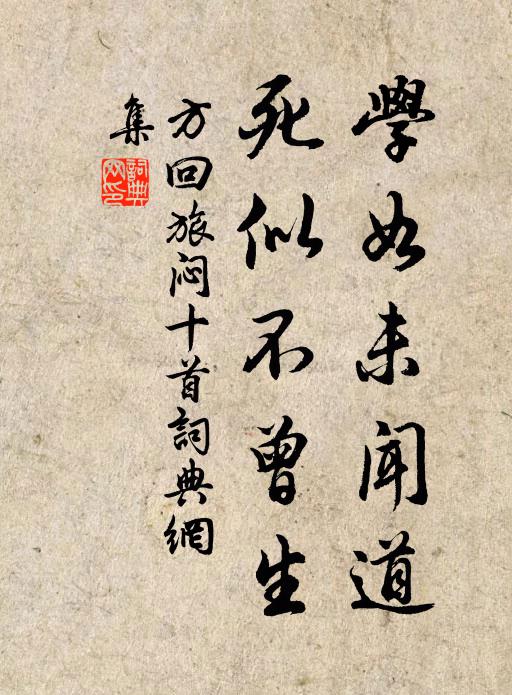 學如未聞道
死似不曾生
方回旅闷十首詞典網
集
詞典網印